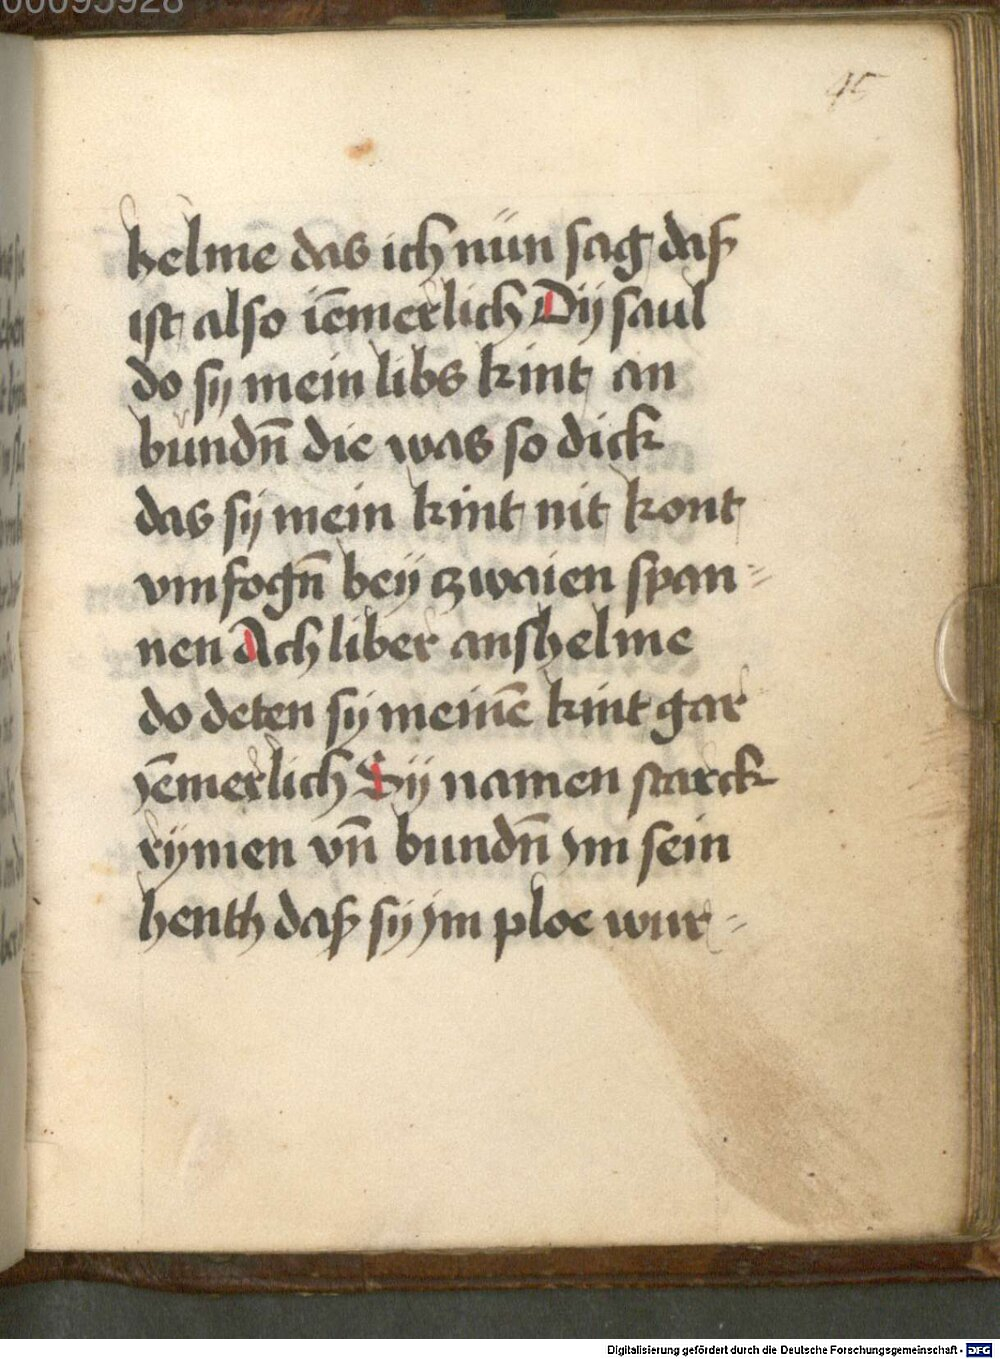 00095928
45
helme das ich nün sag daß
ist also iēmerlich Dij saul
do sÿ mein libs kint an
bundn̄ die was so dick
das sÿ mein kint nit kont
vmfogn̄ beÿ zwaien span-
nen Ach liber anshelme
do deten sÿ meinē kint gar
yēmerlich Sÿ namen starck
rÿmen vn̄ bundn̄ ym sein
henth daß sÿ ym ploe wur-
Digitalisierung gefördert durch die Deutsche Forschungsgemeinschaft - DFG